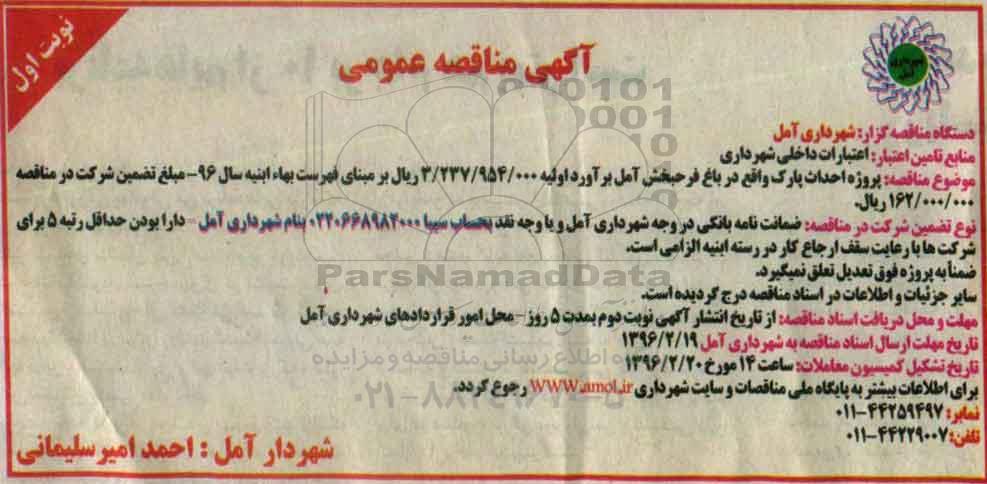 نوبت اول
آگهی مناقصه عمومی
شهرداری آمل
دستگاه مناقصه گزار: شهرداری آمل
منابع تامین اعتبار: اعتبارات داخلی شهرداری
موضوع مناقصه: پروژه احداث پارک واقع در باغ فرحبخش آمل برآورد اولیه ۳/۲۳۷/۹۵۴/۰۰۰ ریال بر مبنای فهرست بهاء ابنیه سال ۹۶- مبلغ تضمین شرکت در مناقصه
۱۶۲/۰۰۰/۰۰۰ ریال.
نوع تضمین شرکت در مناقصه: ضمانت نامه بانکی در وجه شهرداری آمل و یا وجه نقد بحساب سیبا ۰۲۲۰۶۶۸۹۸۲۰۰۰ بنام شهرداری آمل - دارا بودن حداقل رتبه ۵ برای
شرکت ها با رعایت سقف ارجاع کار در رسته ابنیه الزامی است.
ضمناً به پروژه فوق تعدیل تعلق نمیگیرد.
سایر جزئیات و اطلاعات در اسناد مناقصه درج گردیده است.
مهلت و محل دریافت اسناد مناقصه: از تاریخ انتشار آگهی نوبت دوم بمدت ۵ روز - محل امور قراردادهای شهرداری آمل
تاریخ مهلت ارسال اسناد مناقصه به شهرداری آمل ۱۳۹۶/۲/۱۹
تاریخ تشکیل کمیسیون معاملات: ساعت ۱۴ مورخ ۱۳۹۶/۲/۲۰
برای اطلاعات بیشتر به پایگاه ملی مناقصات و سایت شهرداری WWW.amol.ir رجوع گردد.
نمابر: ۰۱۱-۴۴۲۵۹۴۹۷
تلفن: ۰۱۱-۴۴۲۲۹۰۰۷
شهردار آمل : احمد امیرسلیمانی
ParsNamadData
اطلاع رسانی مناقصه و مزایده